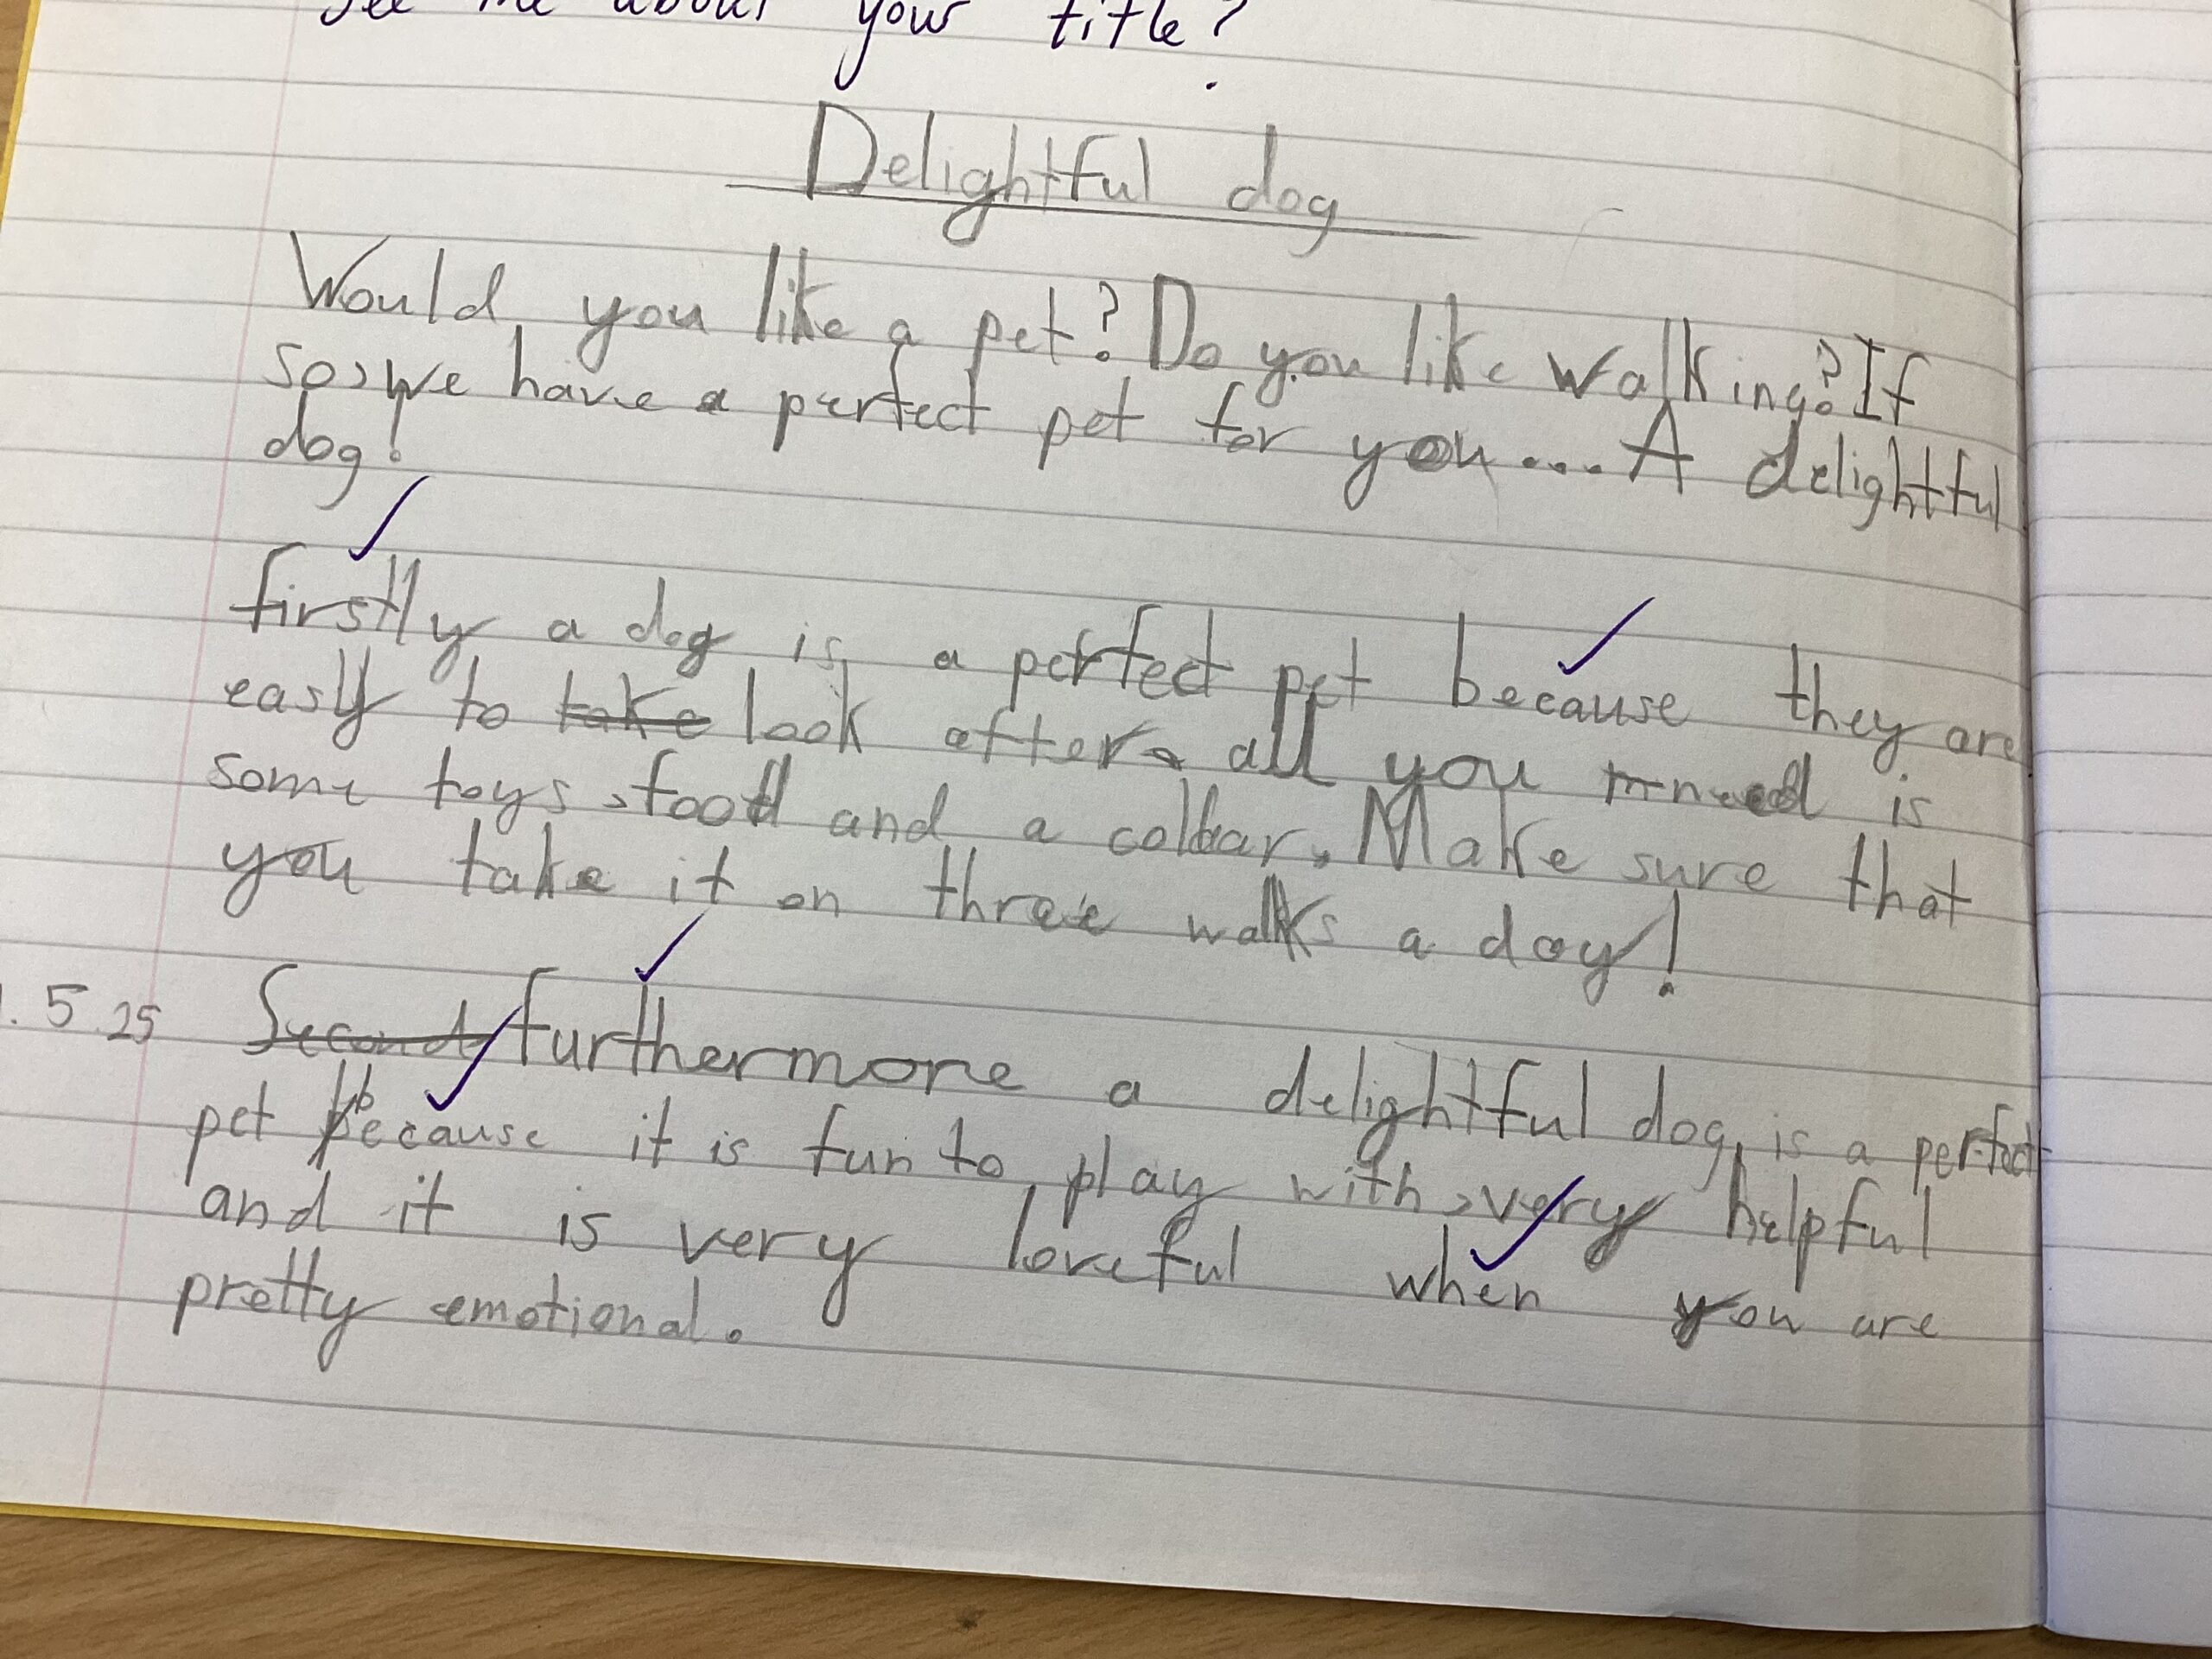 See me about your title?
Delightful dog
Would you like a pet? Do you like walking? If
so, we have a perfect pet for you.... A delightful
dog!
firstly a dog is a perfect pet because they are
easly to take look after. all you need is
some toys, food and a collar. Make sure that
you take it on three walks a day!
.5.25 Second furthermore a delightful dog is a perfect
pet because it is fun to play with, very helpful
and it is very loveful when you are
pretty emotional.